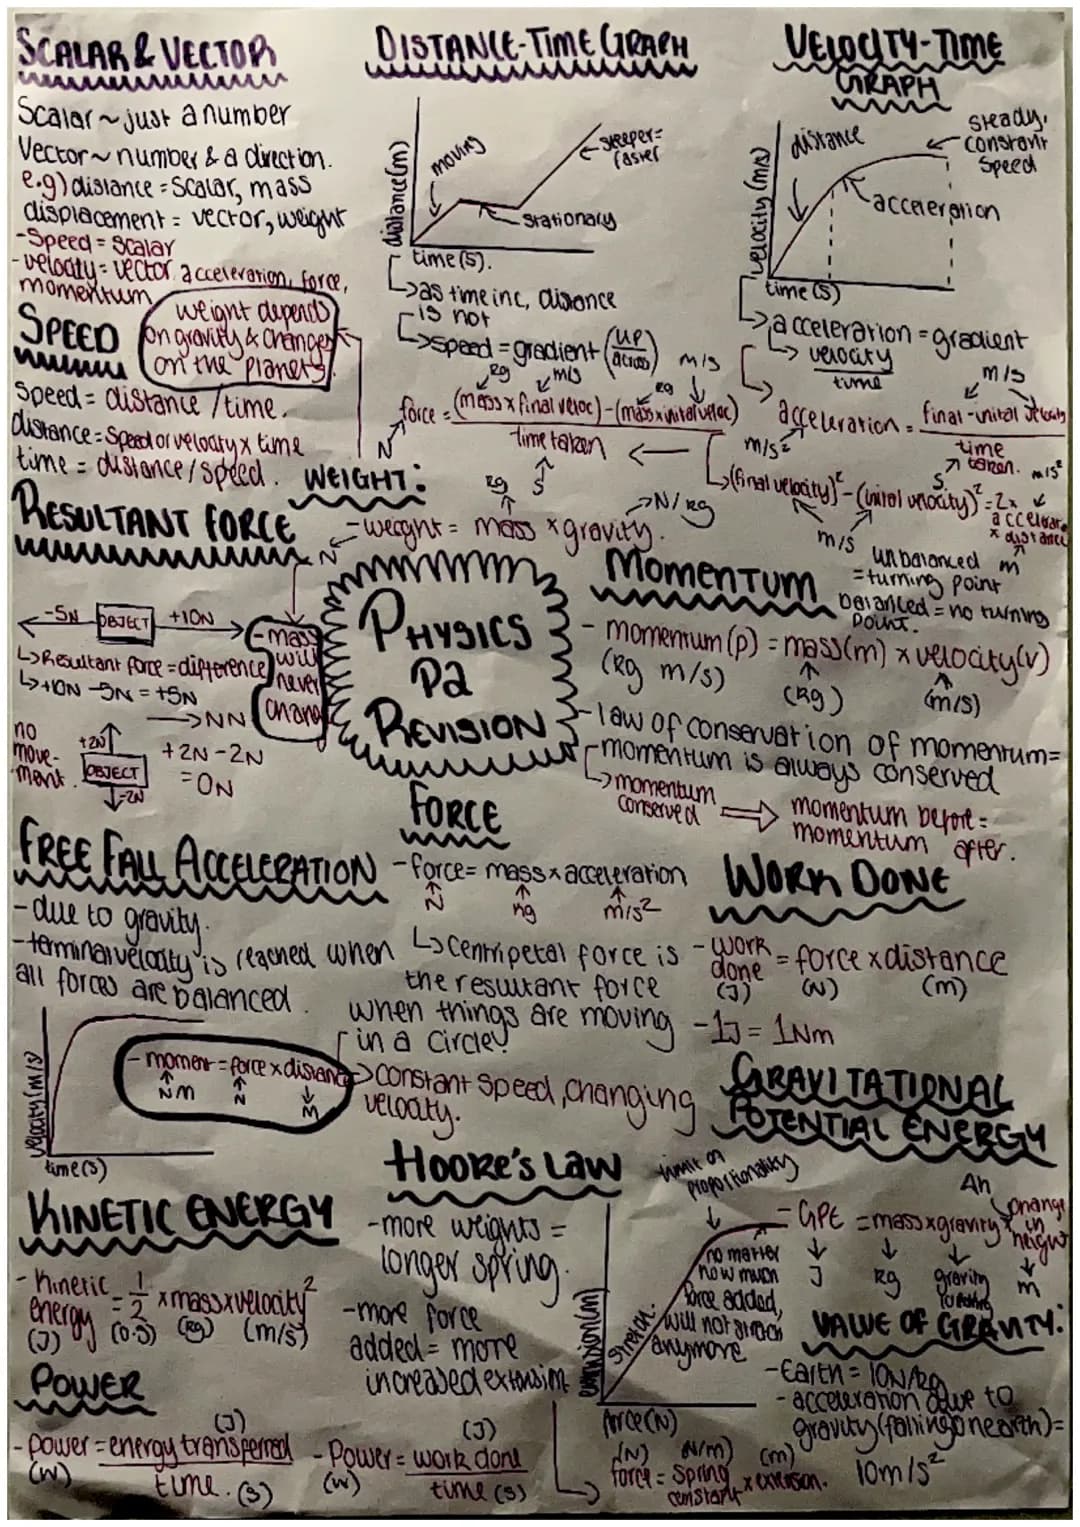 SCALAR & VECTOR
Scalar ~ just a number
Vector ~ number & a direction.
e.g) distance = scalar, mass
displacement = vector, weight
- Speed = scalar
- velocity = vector acceleration, force,
momentum
weight depends
on gravity & changes
on the planets.
SPEED
Speed = distance / time.
distance = speed or velocity x time
time = distance / speed.
DISTANCE-TIME GRAPH
distance (m)
moving
steeper =
faster
stationary
time (s).
as time inc, distance
is not
speed = gradient (up
across)
VELOCITY-TIME
GRAPH
velocity (m/s)
distance
steady,
constant
speed
acceleration
time (s)
acceleration = gradient
velocity
time
kg m/s kg m/s
force = (mass x final veloc) - (mass x inital veloc)
time taken
N
s
m/s
acceleration = final - inital velocity
time
taken.
m/s²
s.
(final velocity)² - (inital velocity)² = 2 x
accelerat
x distance
m/s²
m/s
m
WEIGHT:
- weight = mass x gravity.
N
kg
N/kg
- mass
will
never
chang
RESULTANT FORCE
-5N OBJECT +10N
Resultant force = difference
+10N - 5N = +5N
NN
no
move-
ment.
+2N
OBJECT
-2N
+2N - 2N
= 0N
PHYSICS
P2
REVISION
MOMENTUM
unbalanced
= turning point
balanced = no turning
point.
- momentum (p) = mass (m) x velocity (v)
(kg m/s)
(kg)
(m/s)
- law of conservation of momentum =
momentum is always conserved
momentum
conserved
momentum before =
momentum after.
FREE FALL ACCELERATION
- due to gravity.
- terminal velocity is reached when
all forces are balanced.
velocity (m/s)
time (s)
- moment = force x distanc
Nm
N
M
FORCE
- force = mass x acceleration
N
kg
m/s²
Centripetal force is
the resultant force
when things are moving
in a circle!
constant speed, changing
velocity.
WORK DONE
- work
done = force x distance
(J)
(N)
(m)
- 1J = 1Nm
GRAVITATIONAL
POTENTIAL ENERGY
- GPE = mass x gravity x
change
in
height
J
kg
m
VALUE OF GRAVITY:
- Earth = 10N/kg
- acceleration due to
gravity (falling on earth) =
10m/s²
KINETIC ENERGY
- Kinetic
energy = 1/2 x mass x velocity²
(J) (0.5) (kg) (m/s)
POWER
(J)
- power = energy transferred
(W)
time. (s)
(J)
- Power = work done
(W)
time (s)
HOOKE'S LAW
- more weights =
longer spring.
- more force
added = more
increased
limit of
proportionality
stretch.
no matter
how much
force added,
will not strech
anymore
force (N)
(N) (N/m) (m)
force = spring
constant x extension.